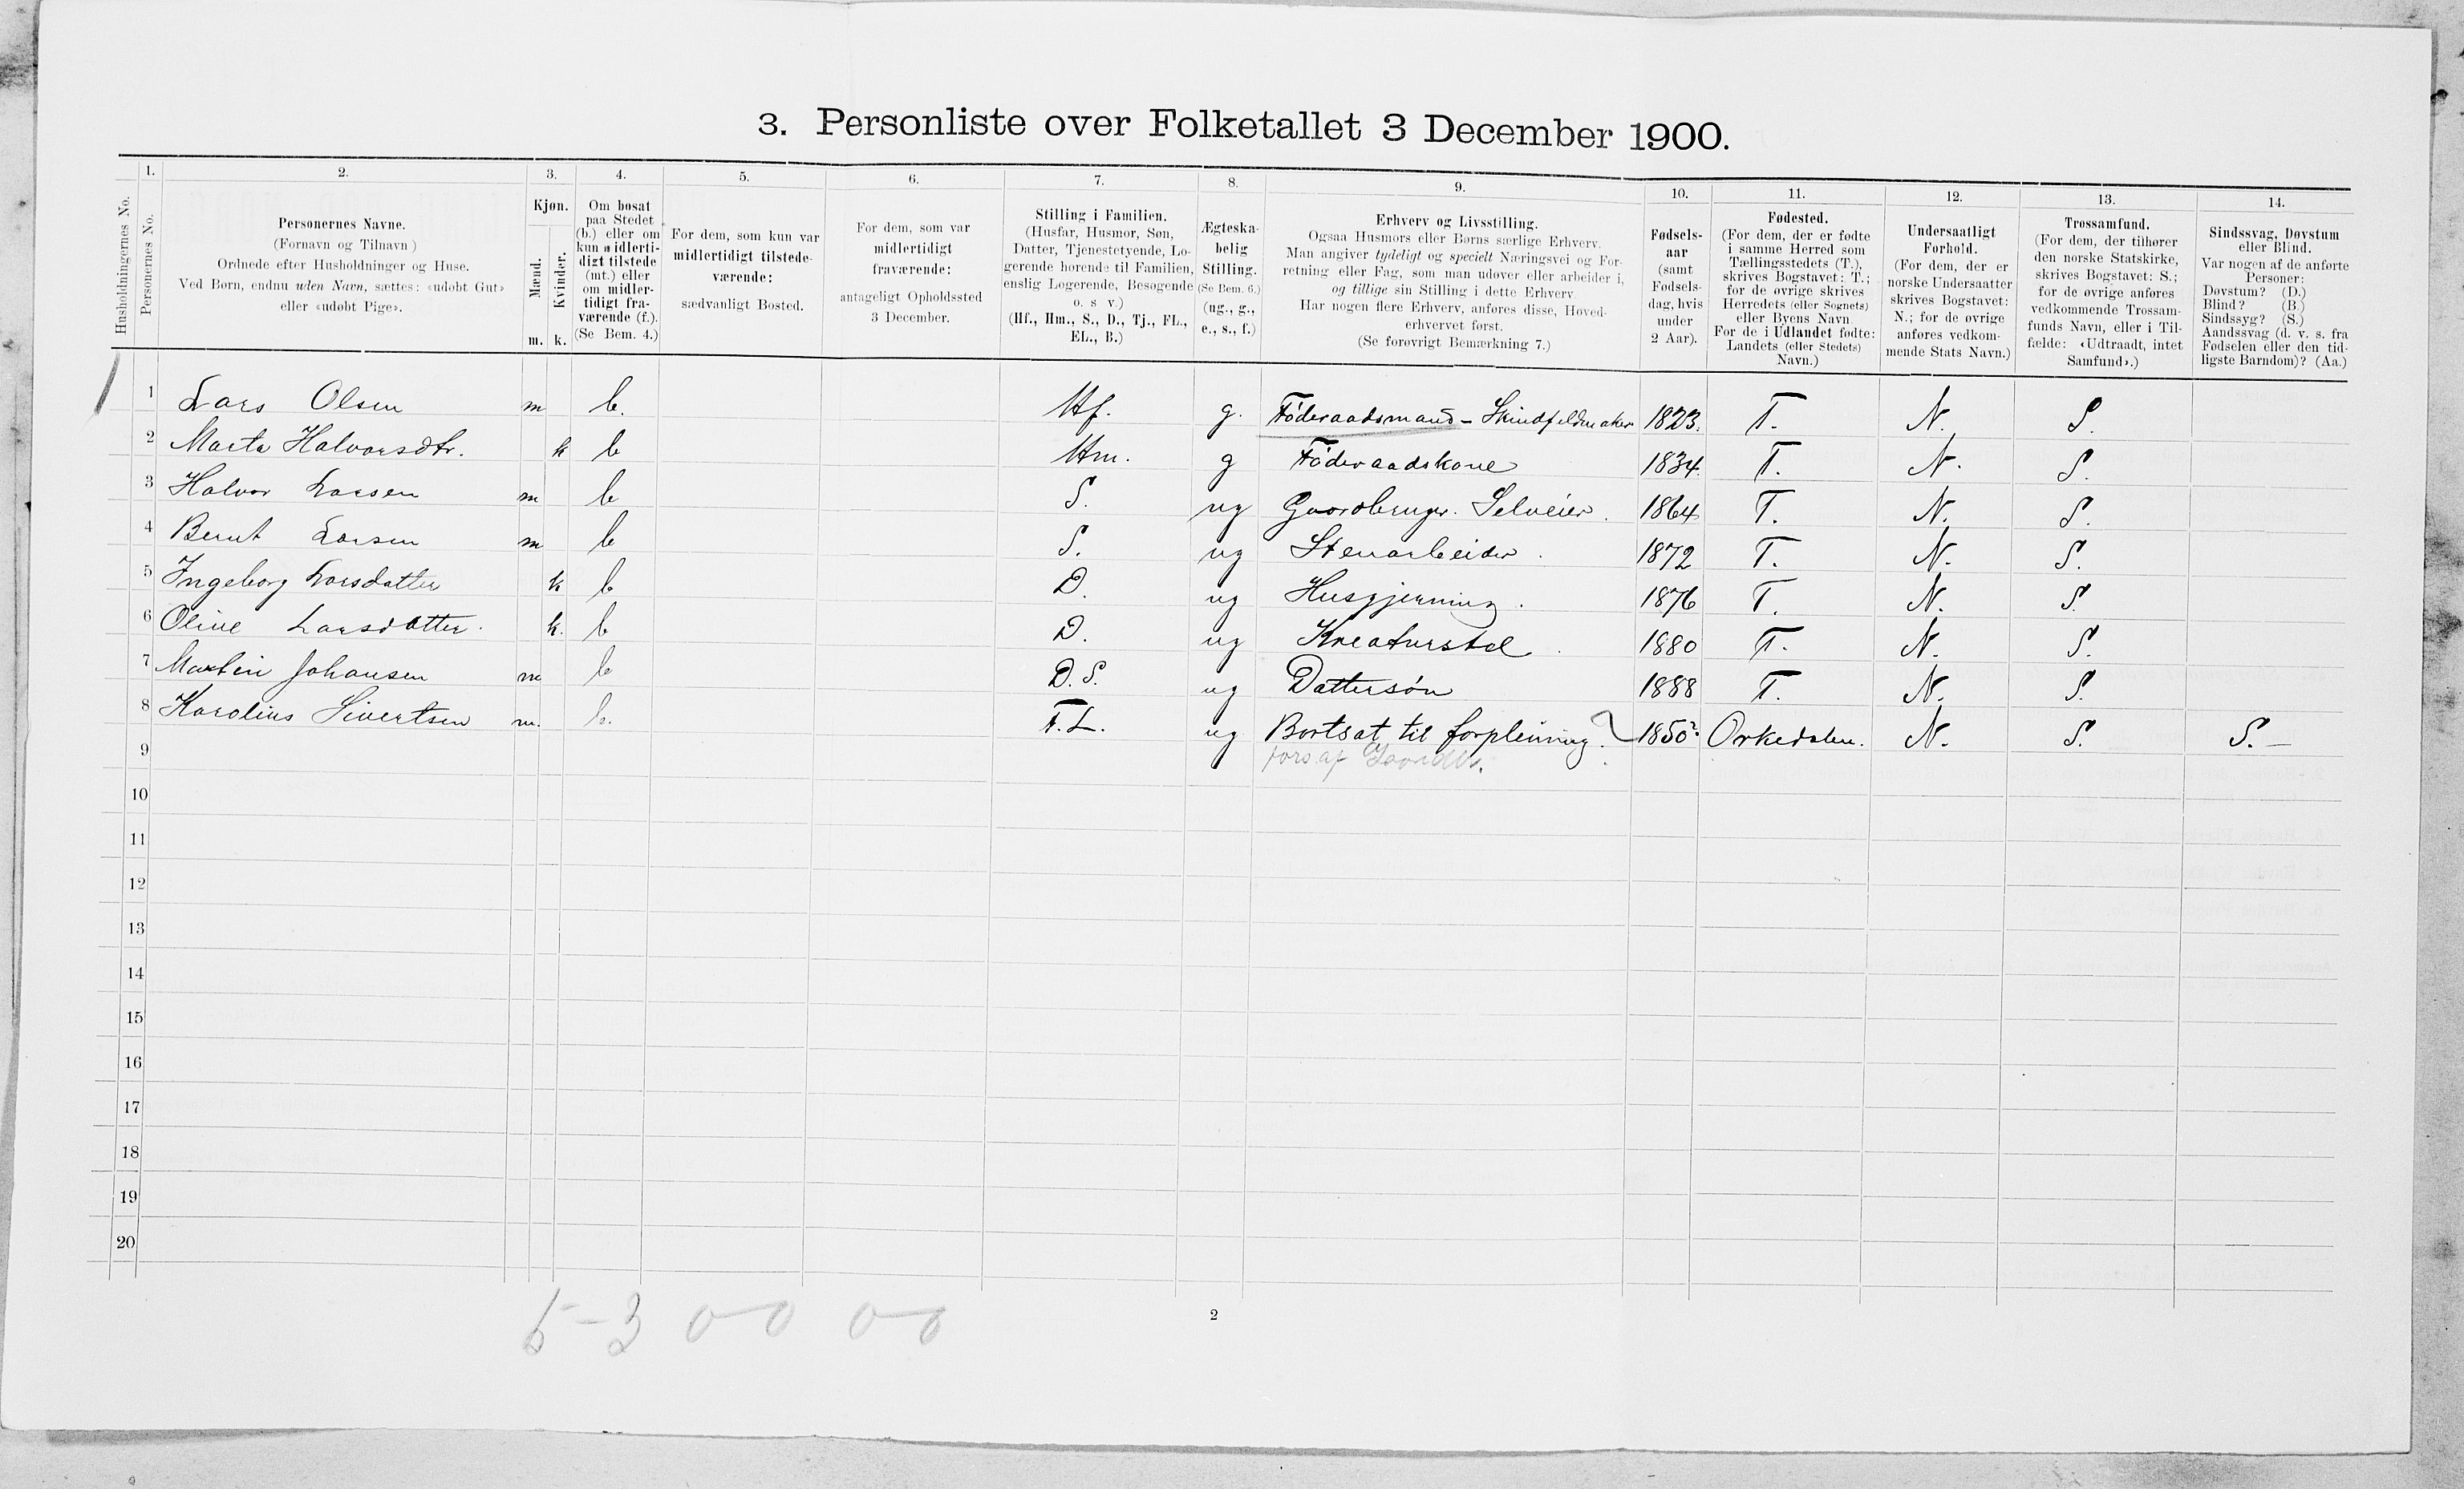 3. Personliste over Folketallet 3 December 1900.
Husholdningernes No.
1. Personernes No.
2. Personernes Navne.
(Fornavn og Tilnavn)
Ordnede efter Husholdninger og Huse.
Ved Børn, endnu uden Navn, sættes: «udøbt Gut»
eller «udøbt Pige».
3. Kjøn.
Mænd. Kvinder.
m. k.
4. Om bosat
paa Stedet
(b.) eller om
kun midlerti-
digt tilstede
(mt.) eller
om midler-
tidigt fra-
værende (f.).
(Se Bem. 4.)
5. For dem, som kun var
midlertidigt tilstede-
værende:
sædvanligt Bosted.
6. For dem, som var
midlertidigt
fraværende:
antageligt Opholdssted
3 December.
7. Stilling i Familien.
(Husfar, Husmor, Søn,
Datter, Tjenestetyende, Lo-
gerende hørende til Familien,
enslig Logerende, Besøgende
o. s v.)
(Hf., Hm., S., D., Tj., FL.,
EL., B.)
8. Ægteska-
belig
Stilling.
(Se Bem. 6.)
(ug., g.,
e., s., f.)
9. Erhverv og Livsstilling.
Ogsaa Husmors eller Børns særlige Erhverv.
Man angiver tydeligt og specielt Næringsvei og For-
retning eller Fag, som man udøver eller arbeider i,
og tillige sin Stilling i dette Erhverv
Har nogen flere Erhverv, anføres disse, Hoved-
erhvervet først.
(Se forøvrigt Bemærkning 7.)
10. Fødsels-
aar
(samt
Fødsels-
dag, hvis
under
2 Aar).
11. Fødested.
(For dem, der er fødte
i samme Herred som
Tællingsstedets (T.),
skrives Bogstavet: T.;
for de øvrige skrives
Herredets (eller Sognets)
eller Byens Navn.
For de i Udlandet fødte:
Landets (eller Stedets)
Navn.)
12. Undersaatligt
Forhold.
(For dem, der er
norske Undersaatter
skrives Bogstavet:
N.; for de øvrige
anføres vedkom-
mende Stats Navn.)
13. Trossamfund.
(For dem, der tilhører
den norske Statskirke,
skrives Bogstavet: S.;
for de øvrige anføres
vedkommende Trossam-
funds Navn, eller i Til-
fælde: «Udtraadt, intet
Samfund».)
14. Sindssvag, Døvstum
eller Blind.
Var nogen af de anførte
Personer:
Døvstum? (D.)
Blind? (B.)
Sindssyg? (S.)
Aandssvag (d. v. s. fra
Fødselen eller den tid-
ligste Barndom)? (Aa.)
1 Lars Olsen m b. Hf. g. Föderaadsmand - Skindfeldmaker 1823. T. N. S.
2 Marta Halvorsdtr. k b Hm. g Föderaadskone 1834. T. N. S.
3 Halvor Larsen m b S. ug Gaardbruger. Selveier. 1864 T. N. S.
4 Bernt Larsen m b S. ug Stenarbeider. 1872 T. N. S.
5 Ingeborg Larsdatter k b D. ug Husgjerning. 1876 T. N. S.
6 Oline Larsdatter. k. b D. ug Kreaturstel. 1880 T. N. S.
7 Martin Johansen m b D. S. ug Dattersön 1888 T. N. S.
8 Karolius Sivertsen m. b. F. L. ug Bortsat til forpleining. 1850? Orkedalen. N. S. S. -
9 fors. af
10
11
12
13
14
15
16
17
18
19
20
5-3 0-0 0-0
2